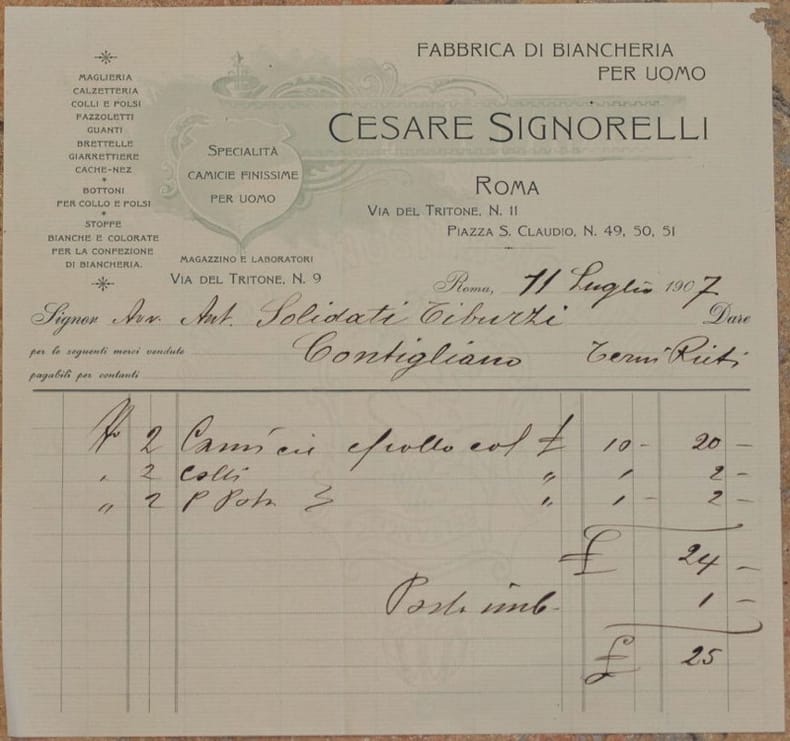 FABBRICA DI BIANCHERIA
PER UOMO
CESARE SIGNORELLI
ROMA
VIA DEL TRITONE, N. 11
PIAZZA S. CLAUDIO, N. 49, 50, 51
MAGLIERIA
CALZETTERIA
COLLI E POLSI
FAZZOLETTI
GUANTI
BRETTELLE
GIARRETTIERE
CACHE-NEZ
BOTTONI
PER COLLO E POLSI
STOFFE
BIANCHE E COLORATE
PER LA CONFEZIONE
DI BIANCHERIA.
SPECIALITÀ
CAMICIE FINISSIME
PER UOMO
MAGAZZINO E LABORATORI
VIA DEL TRITONE, N. 9
Roma, 11 Luglio 1907
Signor Avv. Ant. Solidati Tiburzi Dare
per le seguenti merci vendute Contigliano Terni Rieti
pagabili per contanti
No 2 Camicie col £ 10 - 20 -
" 2 Colli " 1 2 -
" 2 P. " 1 - 2 -
£ 24 -
imb. 1 -
£ 25